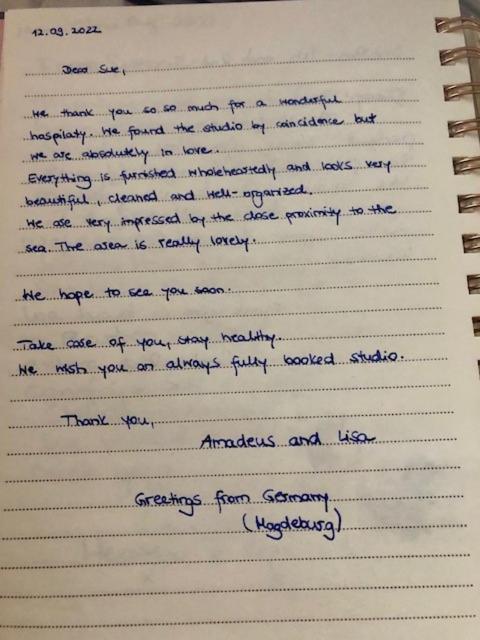 12.09.2022
Dear Sue,
We thank you so so much for a wonderful
hospilaty. We found the studio by coincidence but
we are absolutely in love.
Everything is furnished wholeheartedly and looks very
beautiful, cleaned and well-organized.
We are very impressed by the close proximity to the
sea. The area is really lovely.
We hope to see you soon.
Take care of you, stay healthy.
We wish you an always fully booked studio.
Thank you,
Amadeus and Lisa
Greetings from Germany
(Magdeburg)